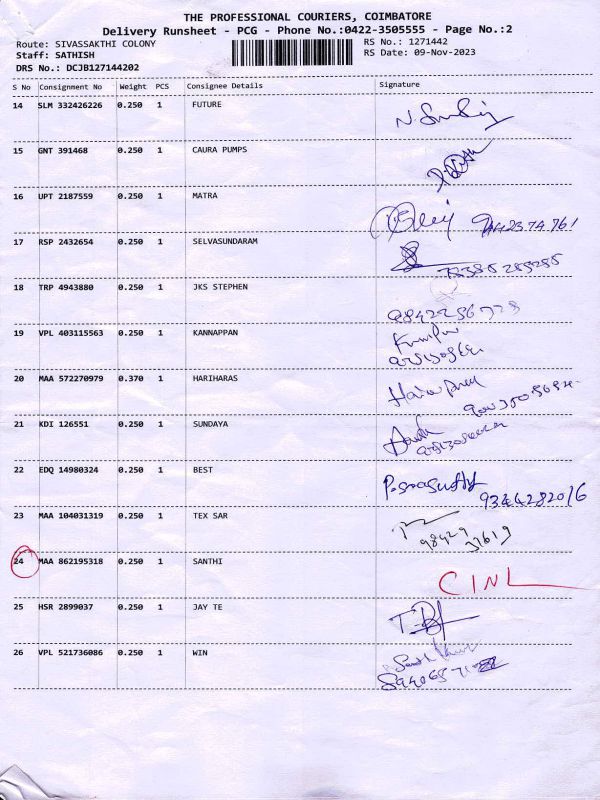 THE PROFESSIONAL COURIERS, COIMBATORE
Delivery Runsheet - PCG - Phone No.:0422-3505555 - Page No.:2
Route: SIVASSAKTHI COLONY RS No.: 1271442
Staff: SATHISH RS Date: 09-Nov-2023
DRS No.: DCJB127144202
S No Consignment No Weight PCS Consignee Details Signature
14 SLM 332426226 0.250 1 FUTURE
15 GNT 391468 0.250 1 CAURA PUMPS
16 UPT 2187559 0.250 1 MATRA
17 RSP 2432654 0.250 1 SELVASUNDARAM
18 TRP 4943880 0.250 1 JKS STEPHEN
19 VPL 403115563 0.250 1 KANNAPPAN
20 MAA 572270979 0.370 1 HARIHARAS
21 KDI 126551 0.250 1 SUNDAYA
22 EDQ 14980324 0.250 1 BEST
9344282016
23 MAA 104031319 0.250 1 TEX SAR
98429
37619
24 MAA 862195318 0.250 1 SANTHI
CINL
25 HSR 2899037 0.250 1 JAY TE
26 VPL 521736086 0.250 1 WIN